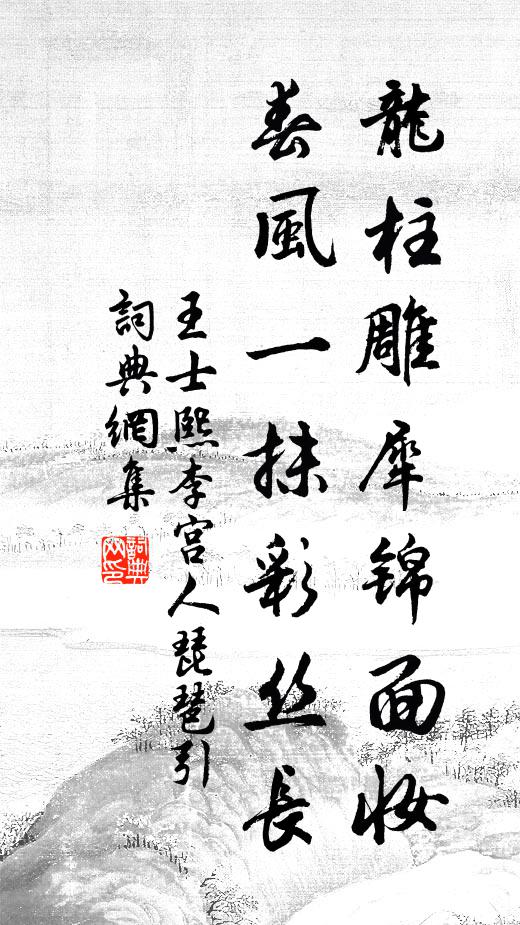 龍柱雕犀錦面妝
春風一抹彩丝長
王士熙·李宮人琵琶引
詞典網集
詞典网印